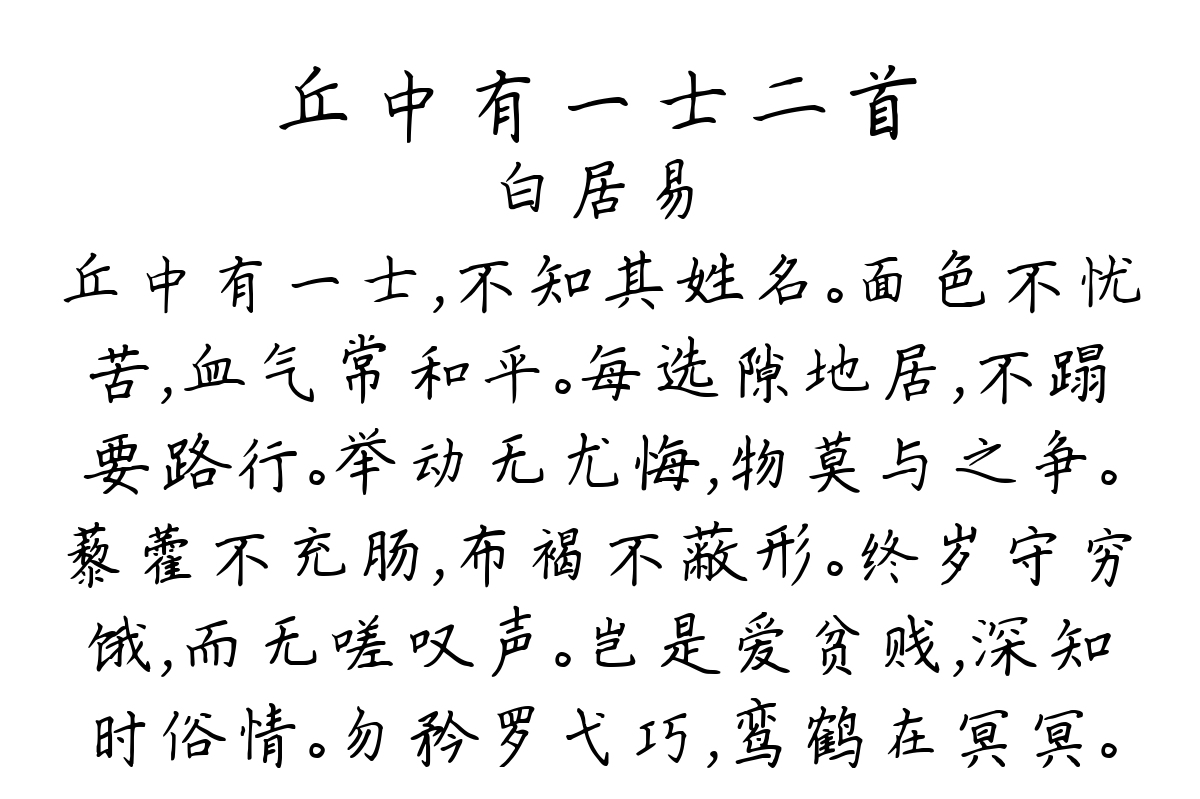 丘中有一士二首
白居易
丘中有一士,不知其姓名。面色不忧
苦,血气常和平。每选隙地居,不蹋
要路行。举动无尤悔,物莫与之争。
藜藿不充肠,布褐不蔽形。终岁守穷
饿,而无嗟叹声。岂是爱贫贱,深知
时俗情。勿矜罗弋巧,鸾鹤在冥冥。